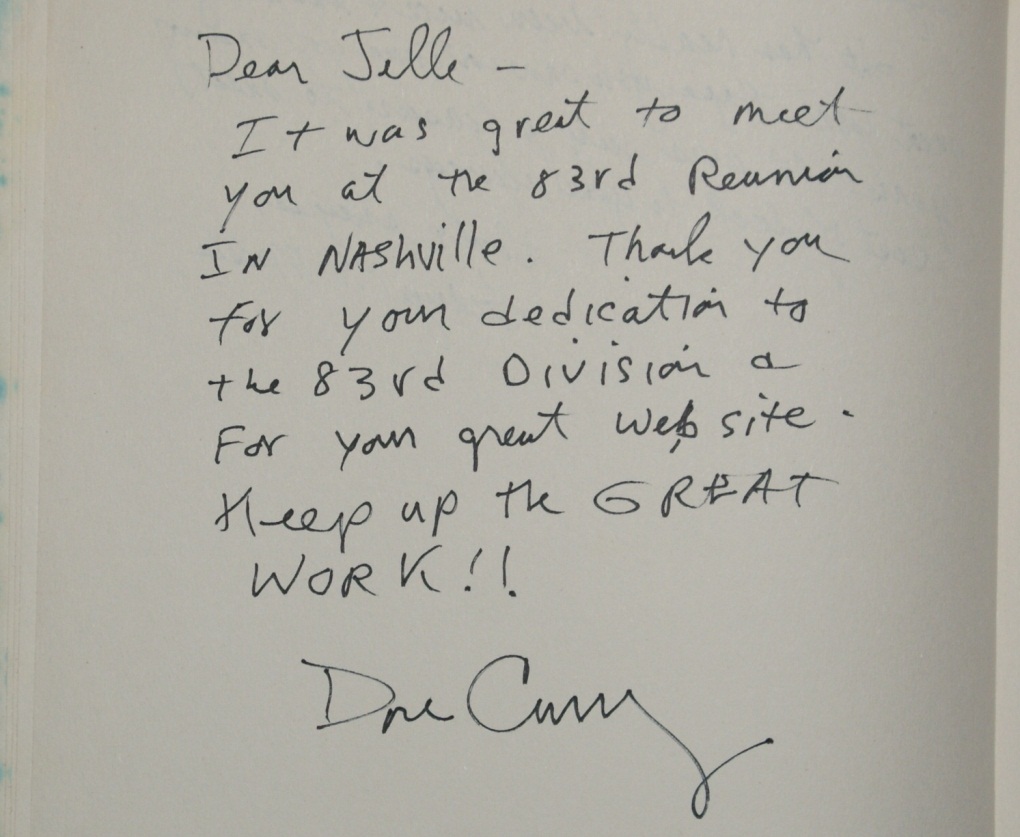 Dear Jelle –
It was great to meet
you at the 83rd Reunion
IN NAShville. Thank you
for your dedication to
the 83rd Division &
For your great web site.
Keep up the GREAT
WORK!!
Curry